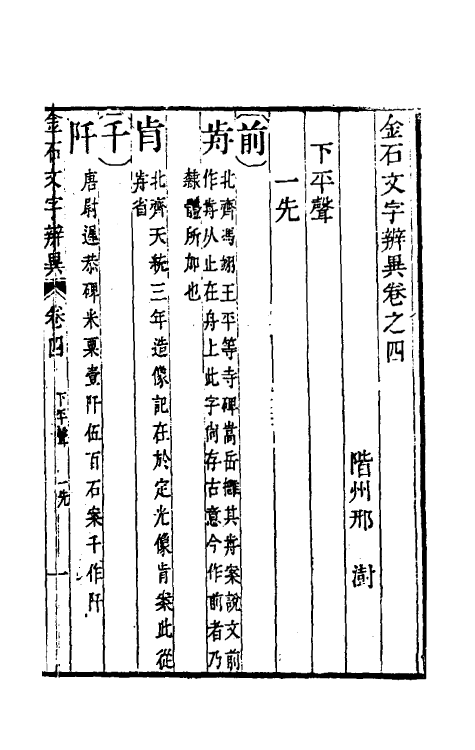 金石文字辨異卷之四
階州邢 澍
下平聲
一先
前
歬 北齊馮翊王平等寺碑嵩岳擁其歬案說文前
作歬从止在舟上此字尙存古意今作前者乃
隸體所加也
肯 北齊天統三年造像記在於定光像肯案此從
歬省
千
阡 唐尉遲恭碑米粟壹阡伍百石案千作阡
金石文字辨異 卷四 下平聲 一先 一